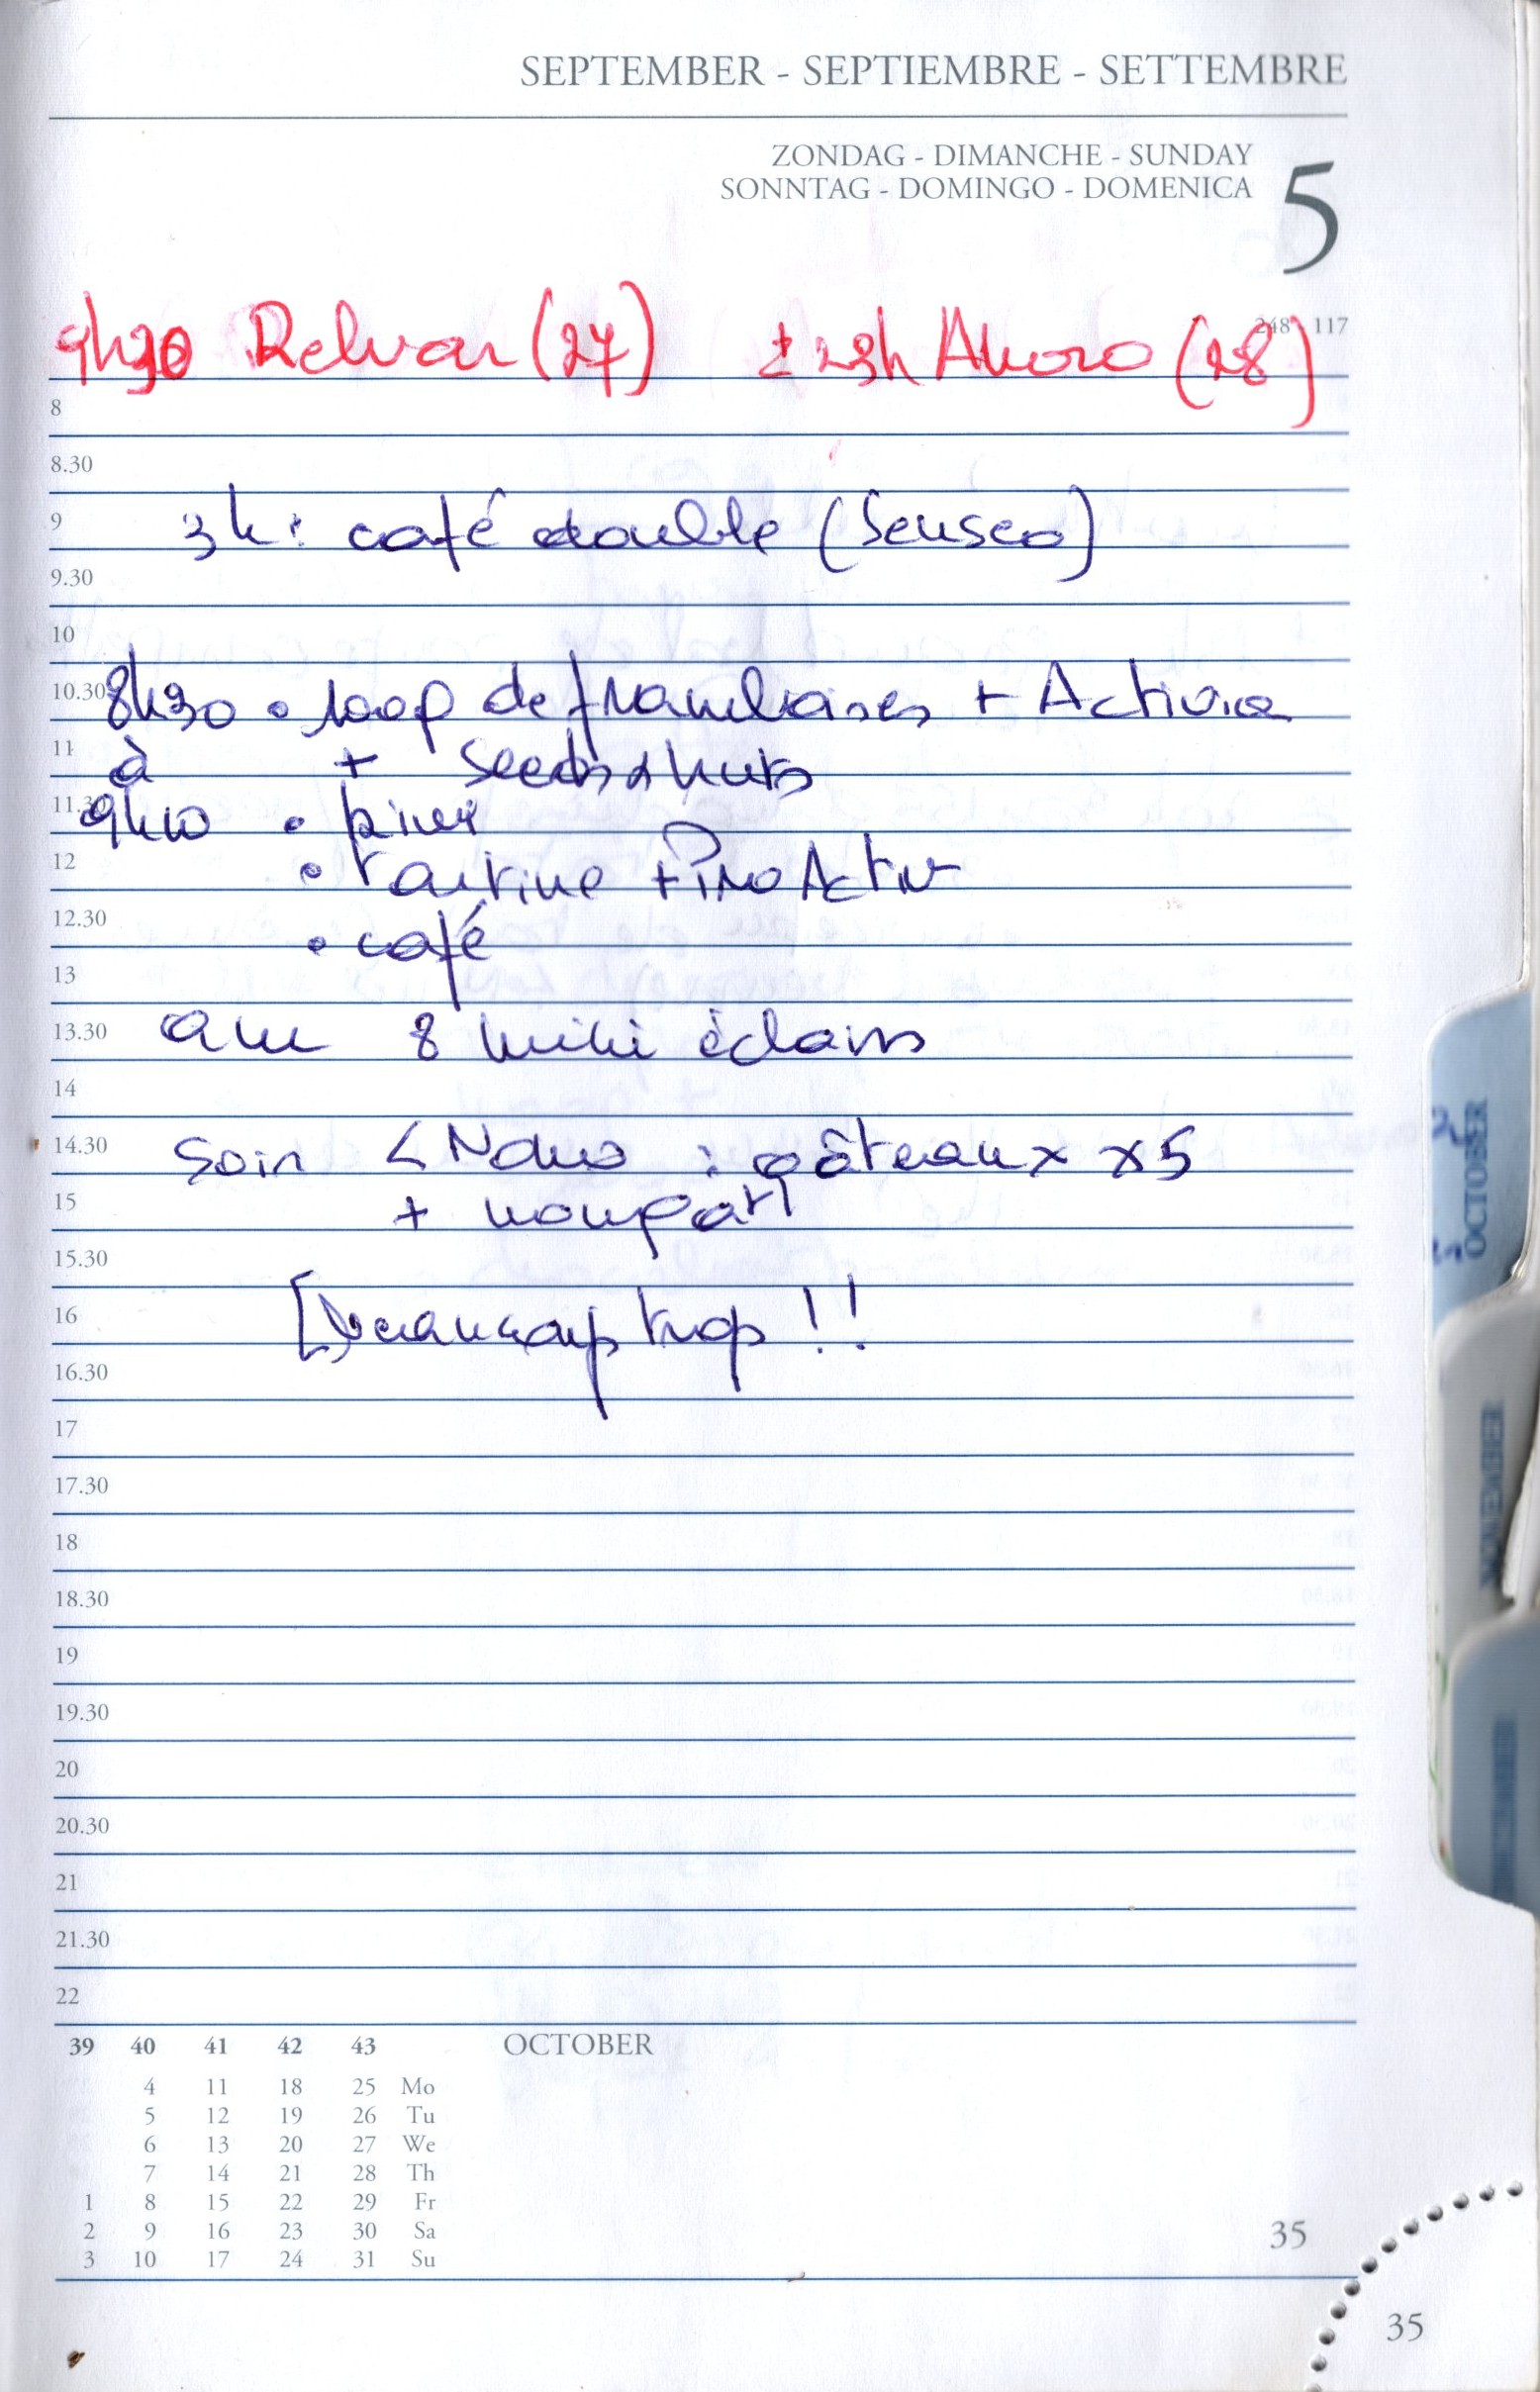 SEPTEMBER - SEPTIEMBRE - SETTEMBRE
ZONDAG - DIMANCHE - SUNDAY
SONNTAG - DOMINGO - DOMENICA
5
248 - 117
9h30 Relvar (27) ± 23h (28)
8
8.30
9 3h: café double (Senseo)
9.30
10
10.30 8h30 • de framboises + Activia
11 à + seeds & nuts
11.30 9h10 • kiwi
12 • tartine + ProActiv
12.30 • café
13
13.30 am 8 mini éclairs
14
14.30 soir : gâteaux x5
15 +
15.30
16 [beaucoup trop !!
16.30
17
17.30
18
18.30
19
19.30
20
20.30
21
21.30
22
39 40 41 42 43 OCTOBER
4 11 18 25 Mo
5 12 19 26 Tu
6 13 20 27 We
7 14 21 28 Th
1 8 15 22 29 Fr
2 9 16 23 30 Sa
3 10 17 24 31 Su
35
35
OCTOBER